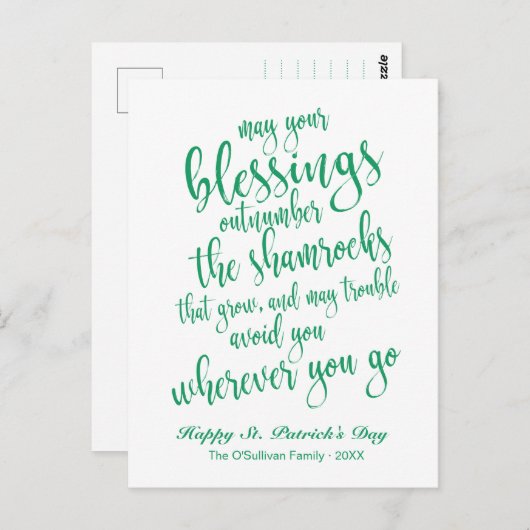 may your
blessings
outnumber
the shamrocks
that grow, and may trouble
avoid you
wherever you go
Happy St. Patrick's Day
The O'Sullivan Family · 20XX